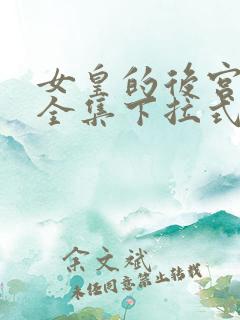 女皇的後宮
全集下拉式
余文斌
未经同意禁止转载